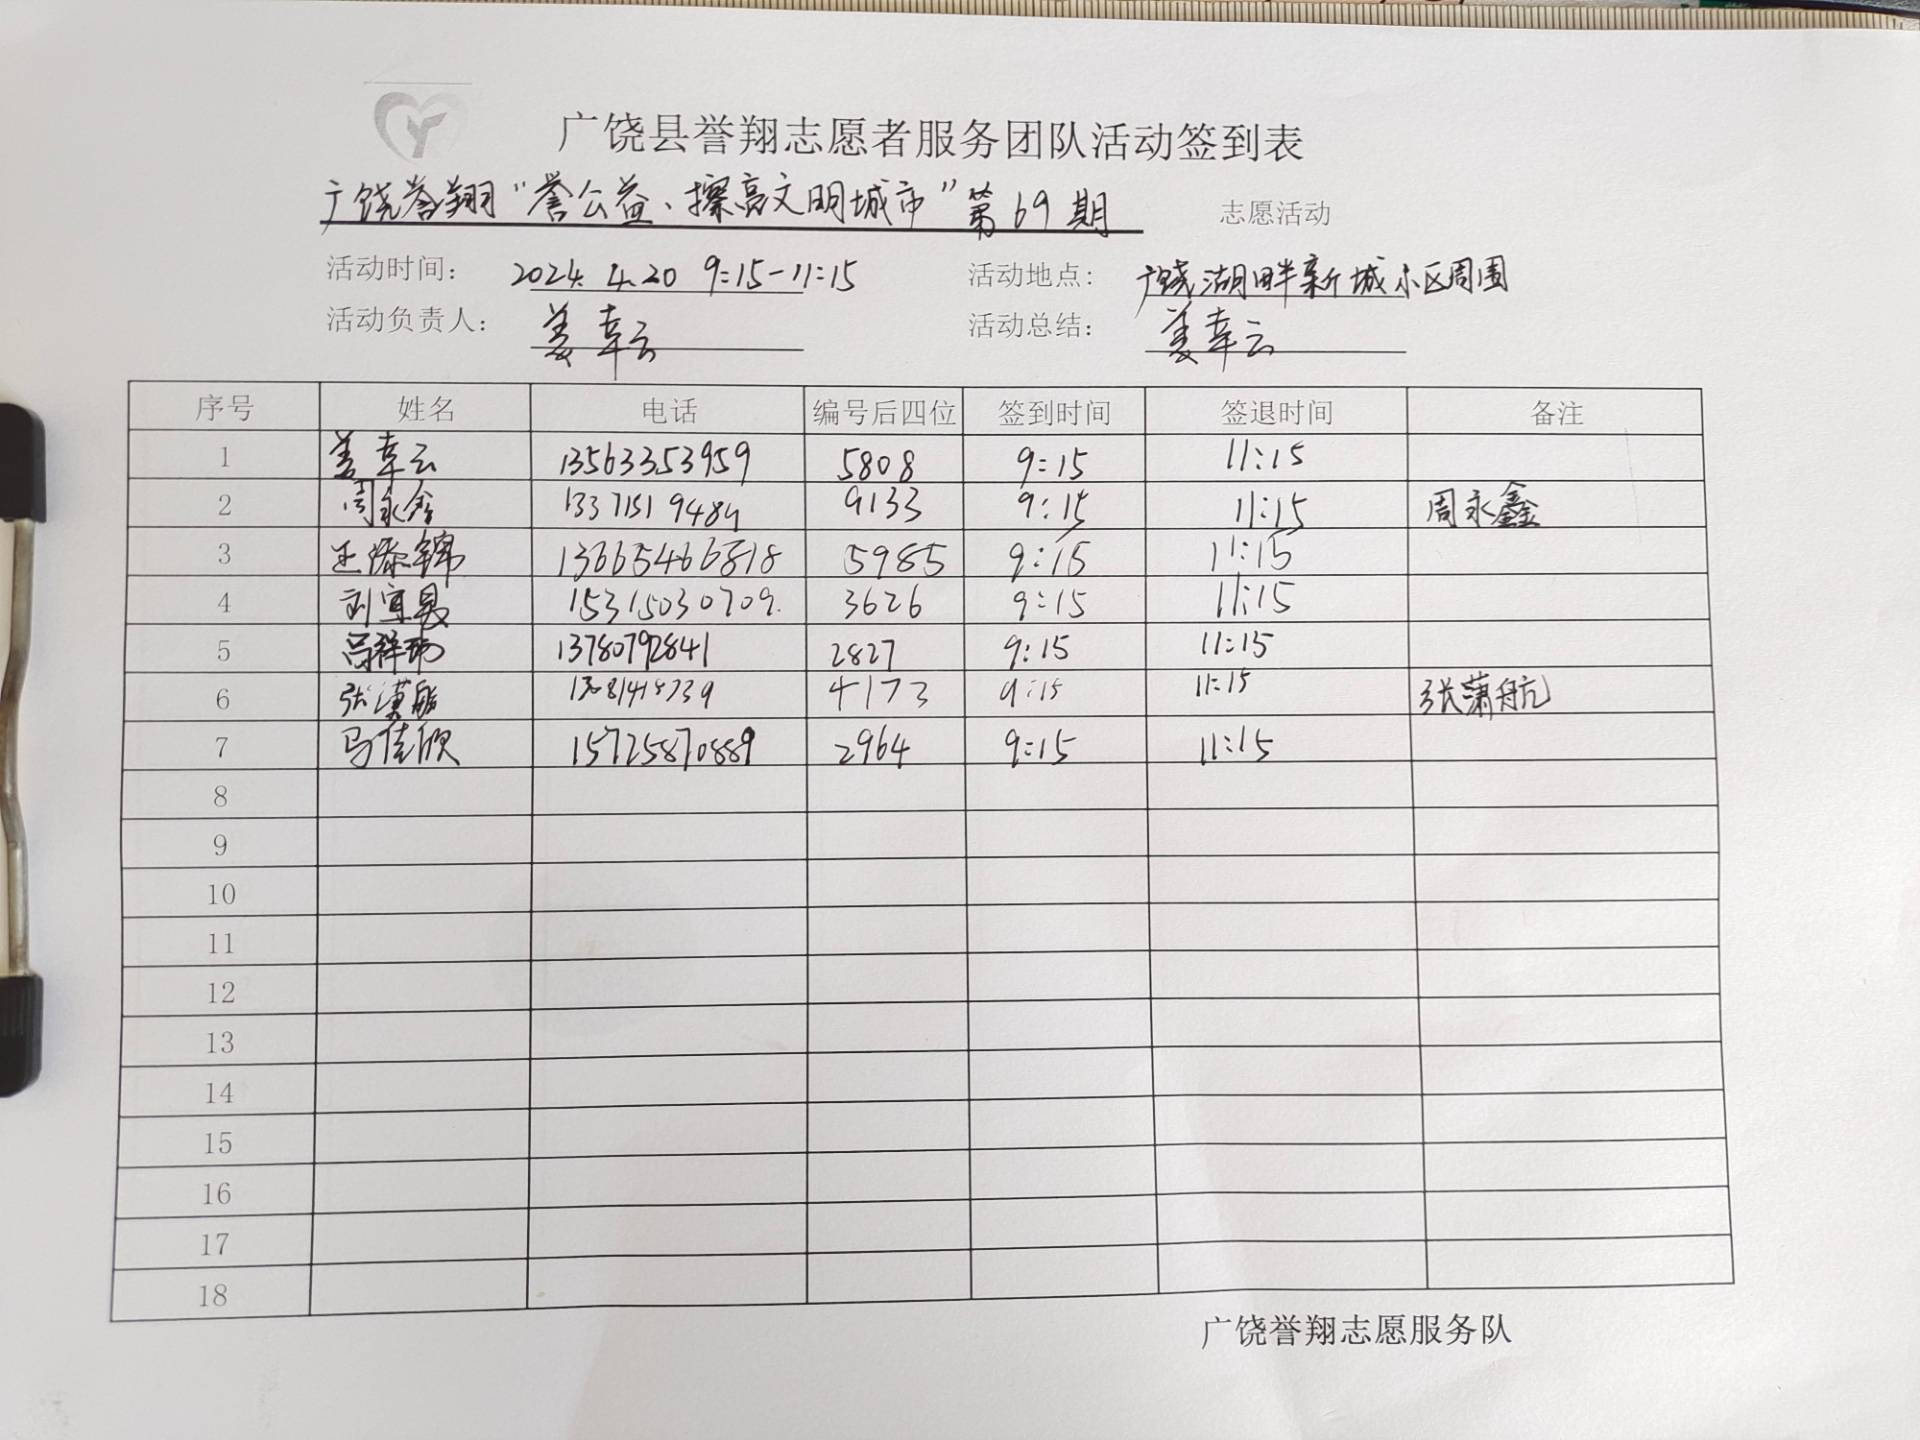 广饶县誉翔志愿者服务团队活动签到表
广饶誉翔“誉公益、擦亮文明城市”第69期 志愿活动
活动时间： 2024.4.20 9:15-11:15 活动地点： 广饶湖畔新城小区周围
活动负责人： 姜幸云 活动总结： 姜幸云
序号 姓名 电话 编号后四位 签到时间 签退时间 备注
1 姜幸云 13563353959 5808 9:15 11:15
2 周永鑫 13371519484 9133 9:15 11:15 周永鑫
3 13665466818 5985 9:15 11:15
4 15315030709. 3626 9:15 11:15
5 13780792841 2827 9:15 11:15
6 4173 9:15 11:15 张萧航
7 马佳欣 15725870889 2964 9:15 11:15
8
9
10
11
12
13
14
15
16
17
18
广饶誉翔志愿服务队